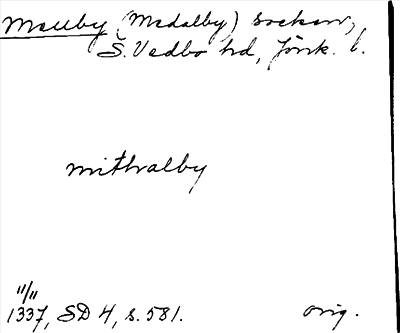 Mellby (Medalby) socken,
S. Vedbo hd, Jönk. l.
mithralby
11/11
1337, SD 4, s. 581. orig.